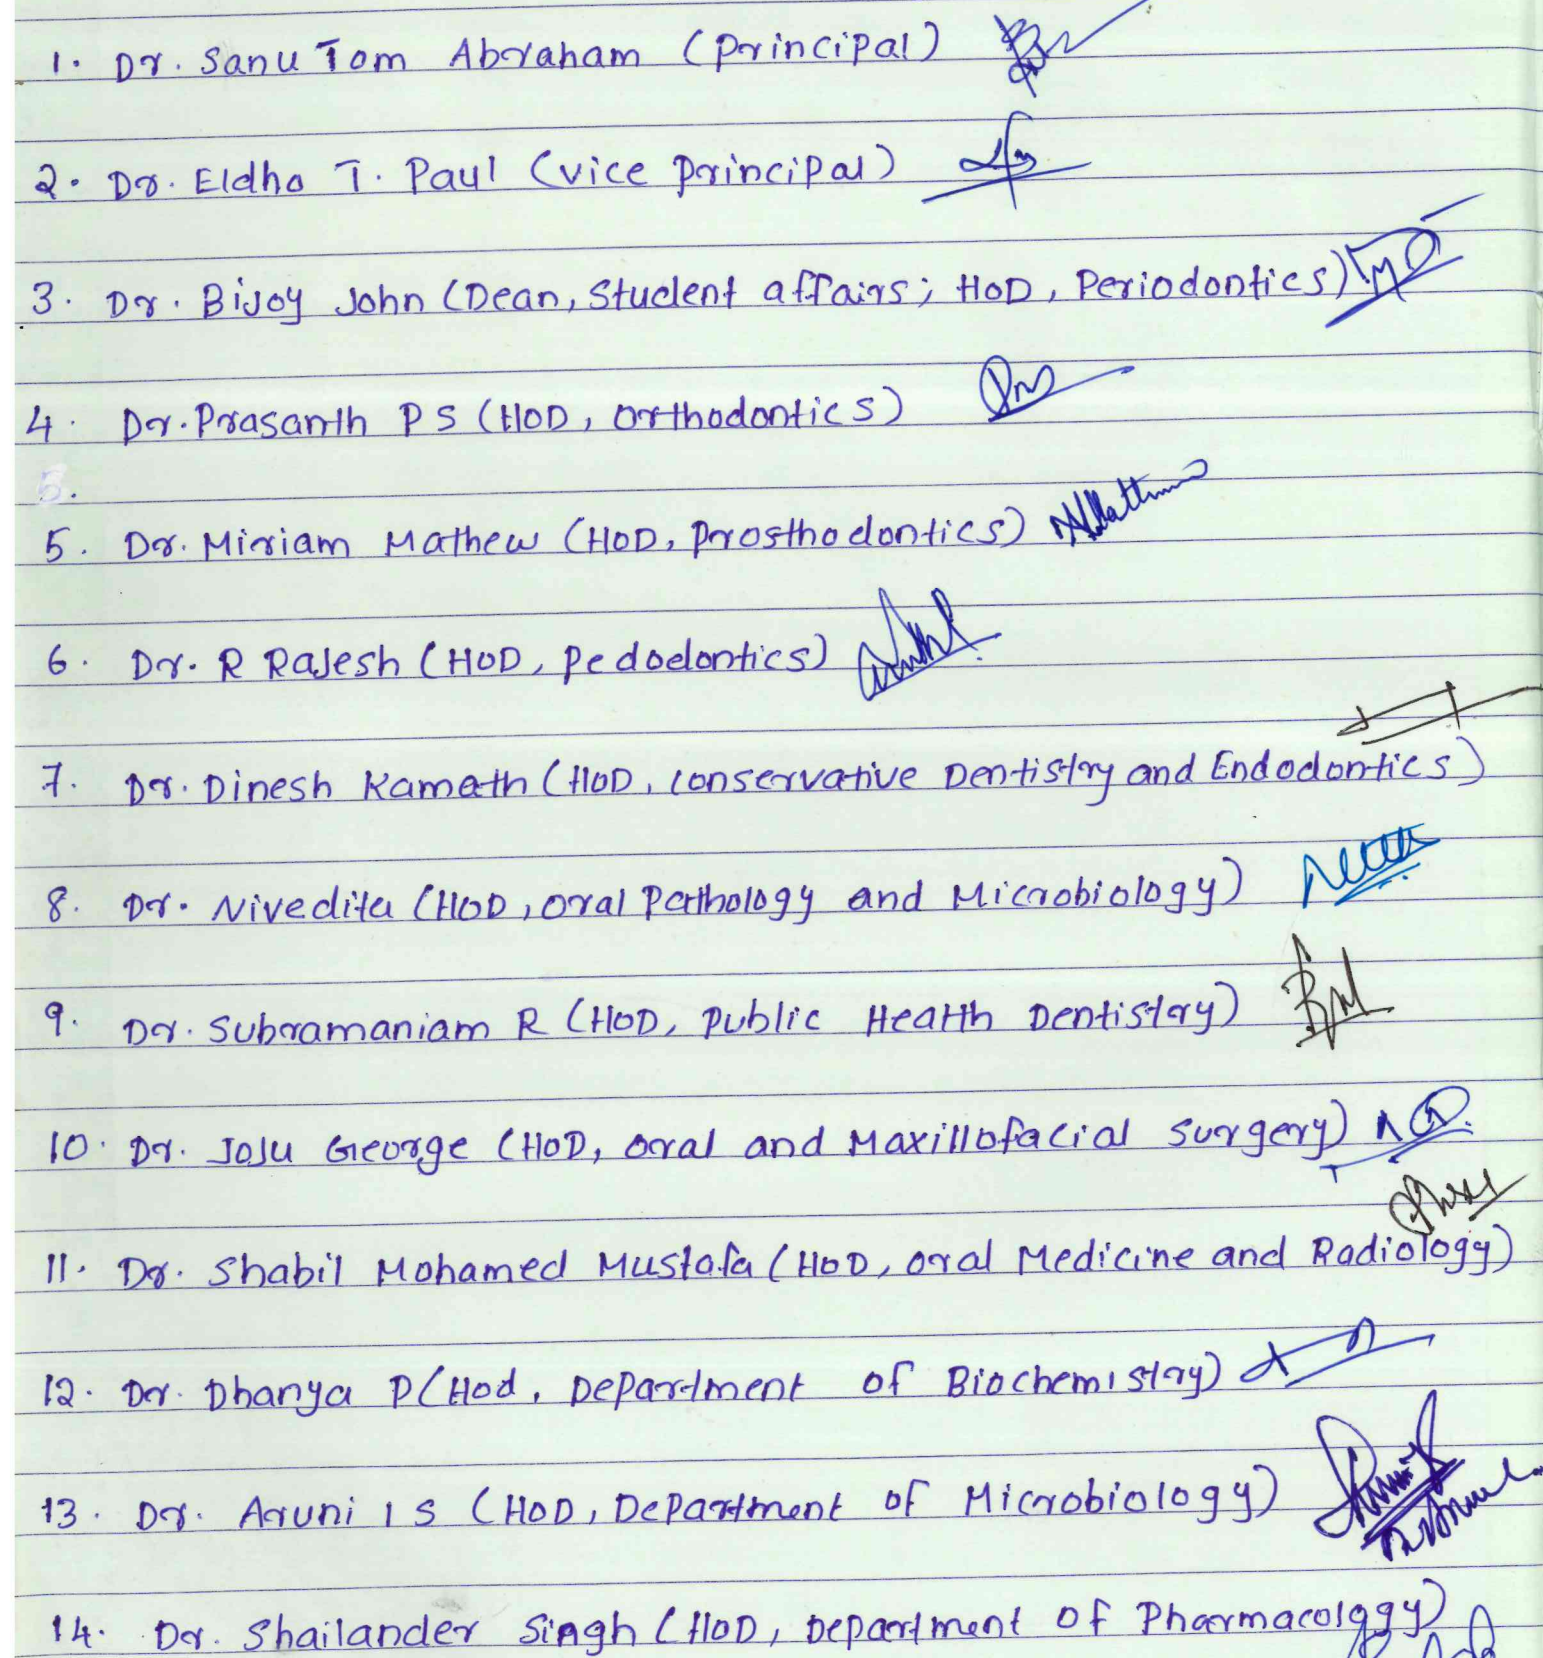 1. Dr. Sanu Tom Abraham (Principal)
2. Dr. Eldho T. Paul (Vice Principal)
3. Dr. Bijoy John (Dean, Student affairs; HOD, Periodontics)
4. Dr. Prasanth P S (HOD, Orthodontics)
5.
5. Dr. Miriam Mathew (HOD, Prosthodontics)
6. Dr. R Rajesh (HOD, Pedodontics)
7. Dr. Dinesh Kamath (HOD, Conservative Dentistry and Endodontics)
8. Dr. Nivedita (HOD, Oral Pathology and Microbiology)
9. Dr. Subramaniam R (HOD, Public Health Dentistry)
10. Dr. Joju George (HOD, Oral and Maxillofacial Surgery)
11. Dr. Shabil Mohamed Mustafa (HOD, Oral Medicine and Radiology)
12. Dr. Dhanya P (Hod, Department of Biochemistry)
13. Dr. Aruni I S (HOD, Department of Microbiology)
14. Dr. Shailander Singh (HOD, Department of Pharmacolggy)